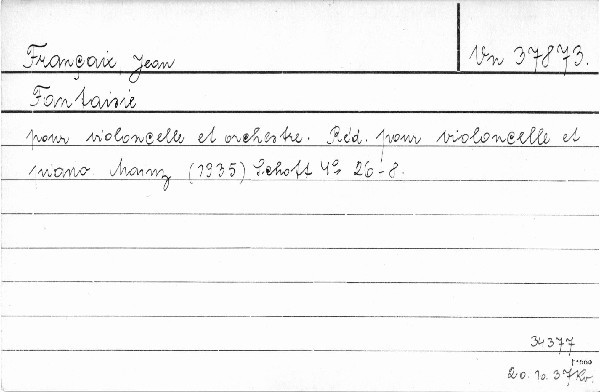 Françaix, Jean
Vn 37873.
Fantaisie
pour violoncelle et orchestre. Réd. pour violoncelle et
piano. Mainz (1935) Schott 4° 26-8.
377
20.10.37 Kr.